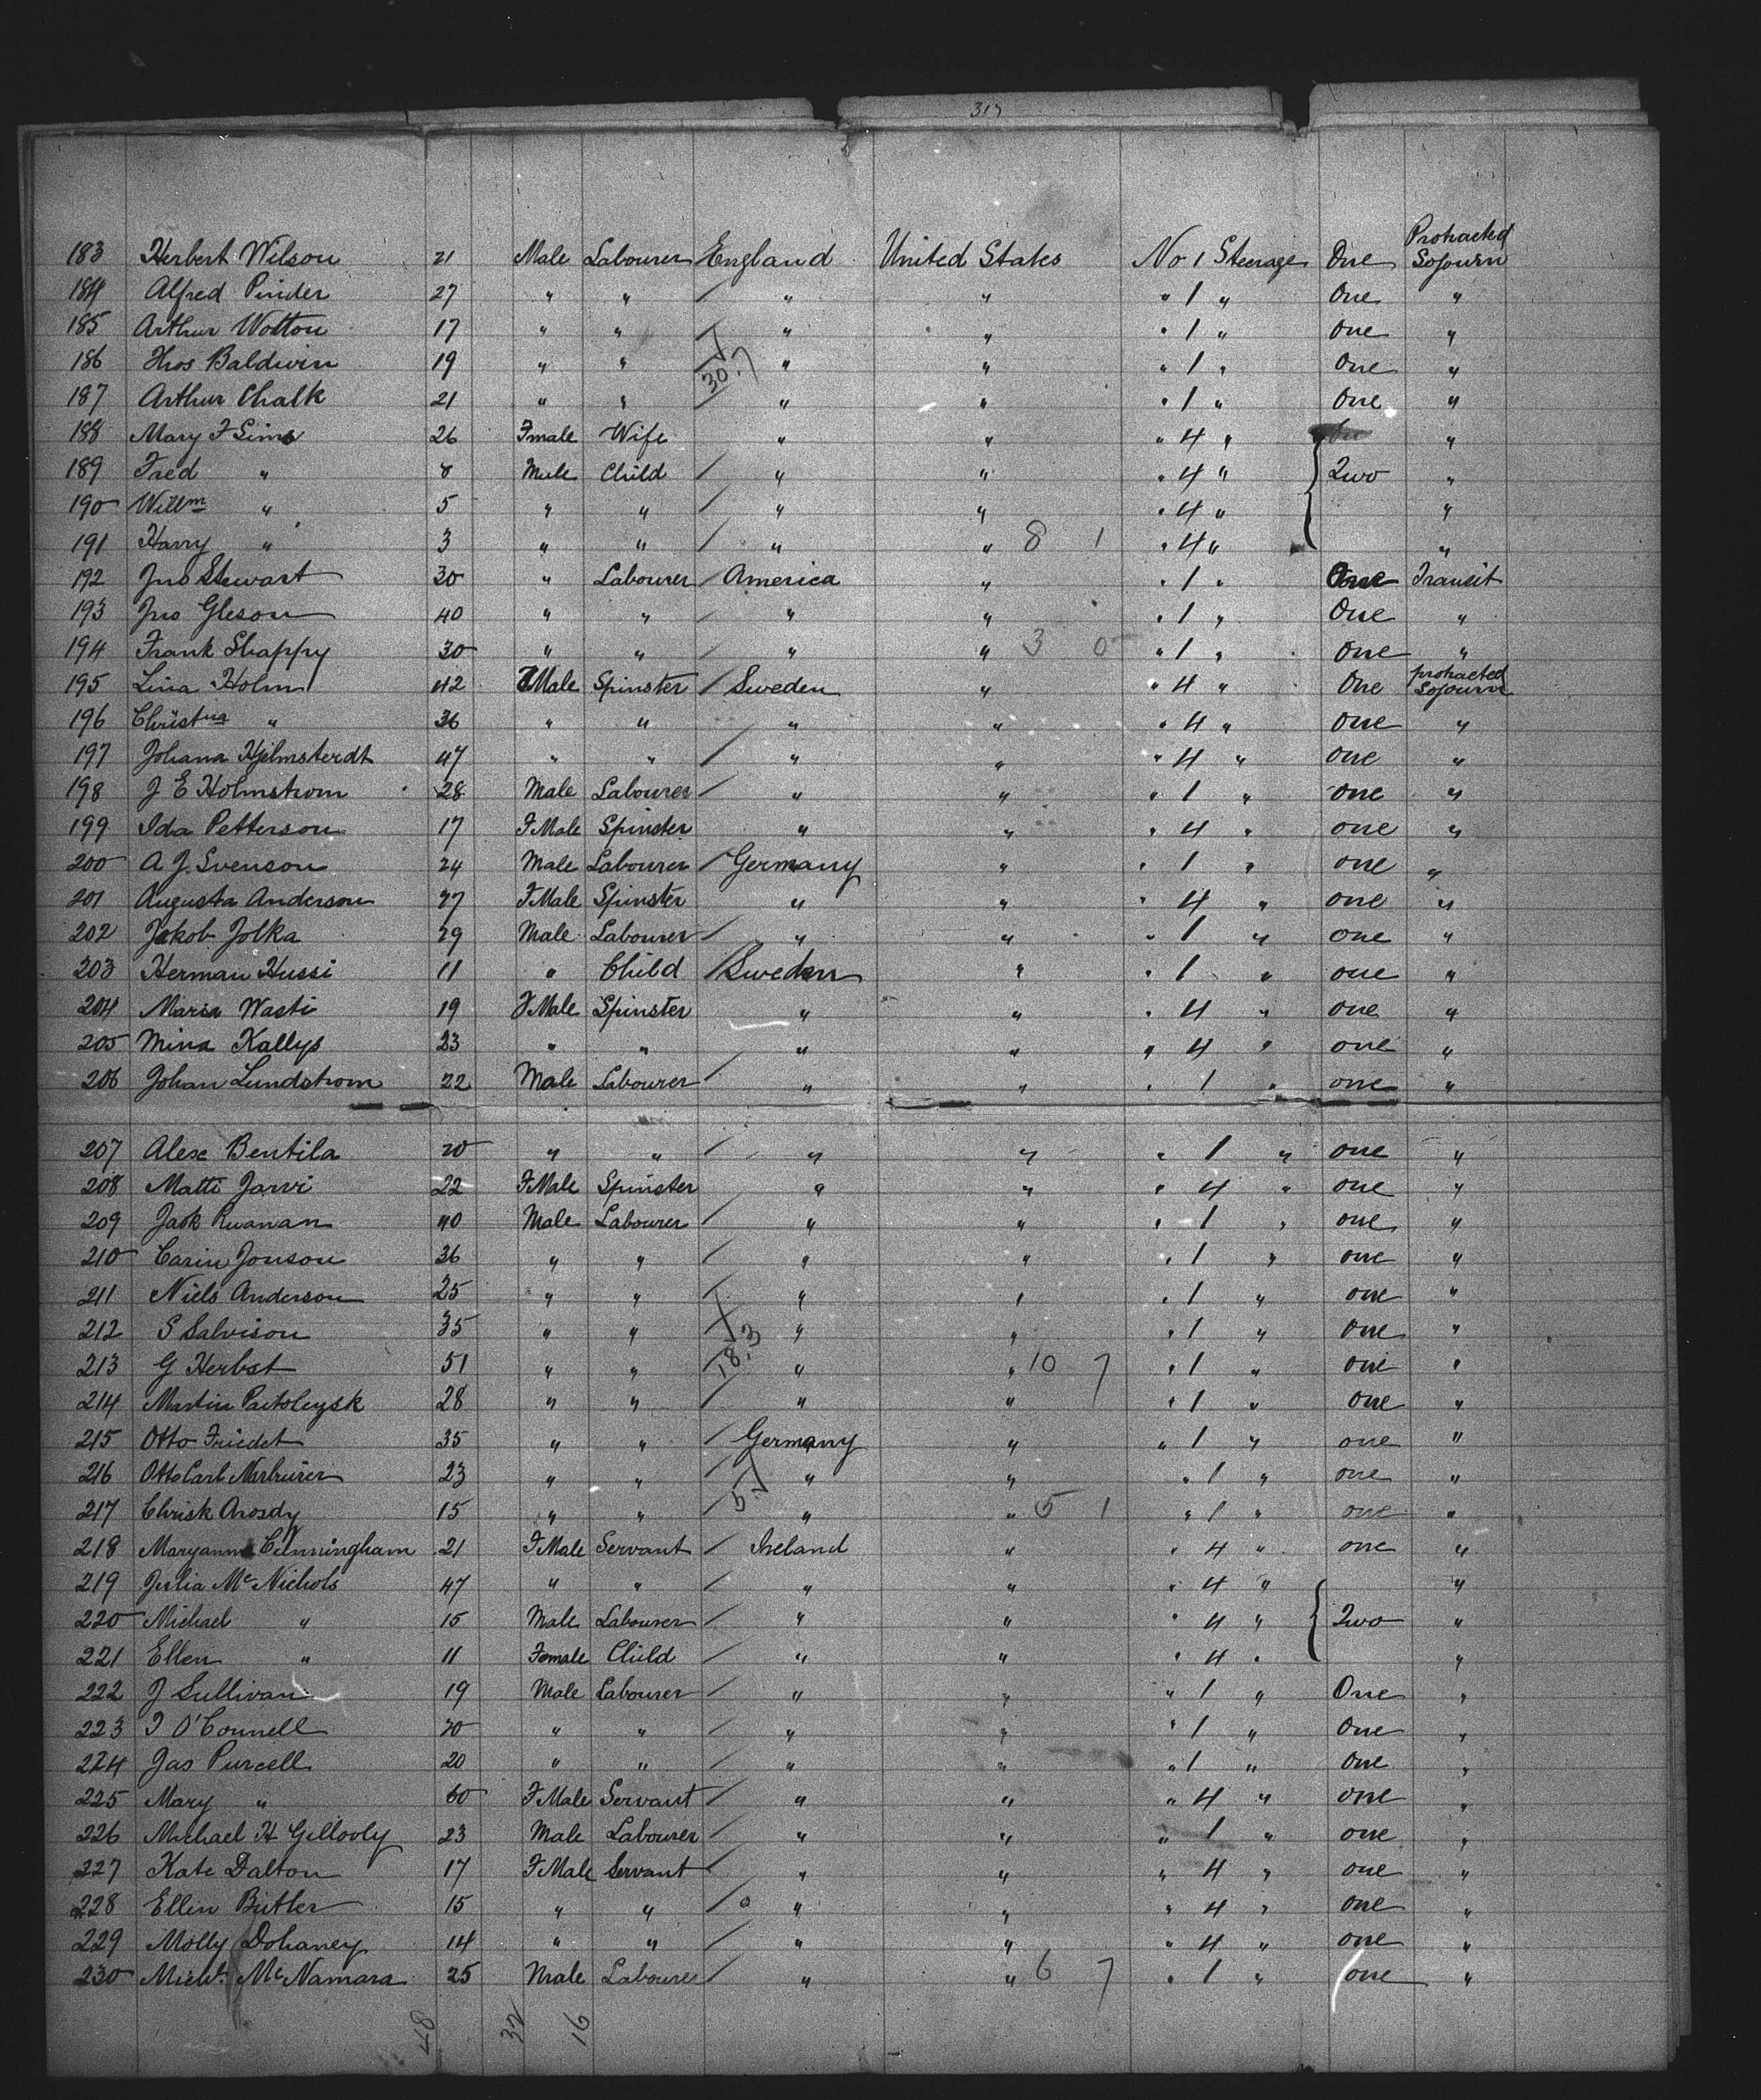 317
183 Herbert Wilson 21 Male Labourer England United States No 1 Steerage One Protracted Sojourn
184 Alfred Pinder 27 " " " " " 1 " One "
185 Arthur Wotton 17 " " " " " 1 " One "
186 Thos Baldwin 19 " " " " " 1 " One "
30.7
187 Arthur Chalk 21 " " " " " 1 " One "
188 Mary F Sims 26 Fmale Wife " " " 4 " "
189 Fred " 8 Male Child " " " 4 " Two "
190 Willm " 5 " " " " " 4 " "
191 Harry " 3 " " " " 8 1 " 4 " "
192 Jno Stewart 30 " Labourer America " " 1 " One Transit
193 Jno Gleson 40 " " " " " 1 " One "
194 Frank Shappy 30 " " " " 3 0 " 1 " One "
195 Lina Holm 42 FMale Spinster Sweden " " 4 " One protracted Sojourn
196 Christna " 36 " " " " " 4 " one "
197 Johana Hjelmsterdt 47 " " " " " 4 " one "
198 J E Holmstrom 28 Male Labourer " " " 1 " one "
199 Ida Petterson 17 FMale Spinster " " " 4 " one "
200 A J. Svenson 24 Male Labourer Germany " " 1 " one "
201 Augusta Anderson 27 FMale Spinster " " " 4 " one "
202 Jakob Jolka 29 Male Labourer " " " 1 " one "
203 Herman Hussi 11 " Child Sweden " " 1 " one "
204 Maria Wasti 19 FMale Spinster " " " 4 " one "
205 Mina Kallys 23 " " " " " 4 " one "
206 Johan Lundstrom 22 Male Labourer " " " 1 " one "
207 Alex Bentila 20 " " " " " 1 " one "
208 Matti Jarvi 22 FMale Spinster " " " 4 " one "
209 Jack Ruanan 40 Male Labourer " " " 1 " one "
210 Carin Jonson 36 " " " " " 1 " one "
211 Niels Anderson 25 " " " " " 1 " one "
212 S Salvison 35 " " " " " 1 " one "
18.3
213 G Herbst 51 " " " " 10 7 " 1 " one "
214 Martin 28 " " " " " 1 " one "
215 Otto Friedet 35 " " Germany " " 1 " one "
216 Otto Carl 23 " " " " " 1 " one "
217 Chrisk Arosdy 15 " " " " 5 1 " 1 " one "
218 Maryanne Cunningham 21 FMale Servant Ireland " " 4 " one "
219 Julia McNichols 47 " " " " " 4 " "
220 Michael " 15 Male Labourer " " " 4 " Two "
221 Ellen " 11 Female Child " " " 4 " "
222 J Sullivan 19 Male Labourer " " " 1 " One "
223 J O'Connell 20 " " " " " 1 " One "
224 Jas Purcell 20 " " " " " 1 " One "
225 Mary " 60 FMale Servant " " " 4 " one "
226 Michael H Gillooly 23 Male Labourer " " " 1 " one "
227 Kate Dalton 17 FMale Servant " " " 4 " one "
228 Ellen Butler 15 " " " " " 4 " one "
229 Molly Dohaney 14 " " " " " 4 " one "
230 Michl. McNamara 25 Male Labourer " " 6 7 " 1 " one "
48 32 16